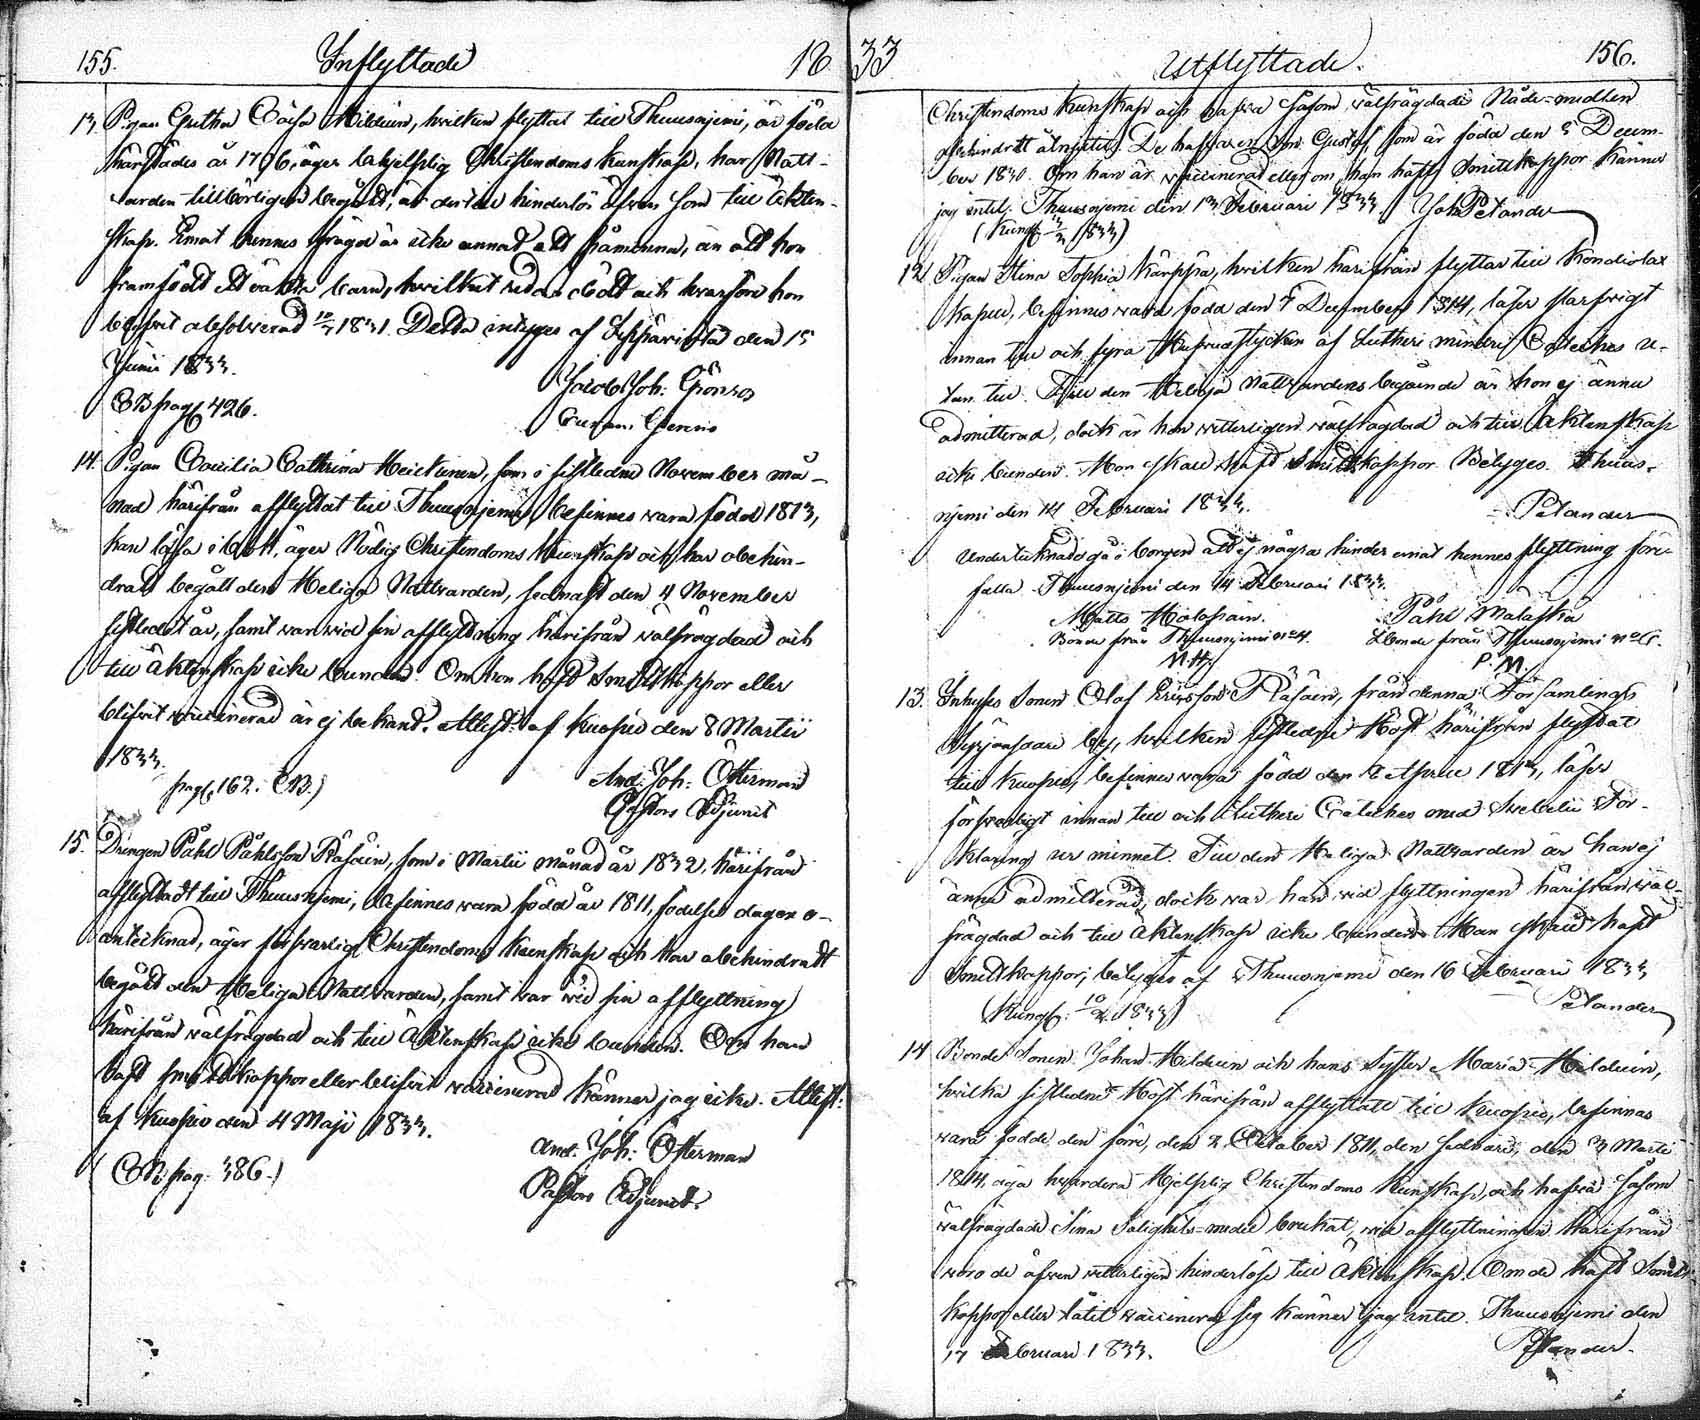 155. Inflyttade 18
13, Pigan Gretha Caisa Hilduin, hvilken flyttat till Thuusnjemi, är född
härstädes år 1796, äger behjelplig Christendoms kunskap, har Natt-
varden tillbörligen begådt, är der till hinderlös äfven som till äkten-
skap. Emot hennes frägd är icke annat att påminna, än att hon
framfödt ett oäkta barn, hvilket redan dödt och hvarföre hon
blifvit absolverad 1831. Detta intygas af Leppävirta den 15
Junii 1833.
CB pag 426. Jacob Joh: Grönros
14. Pigan Caecilia Cathrina Heickinen, som i sistledne November må-
nad härifrån afflyttat till Thuusnjemi, befinnes vara född 1813,
kan läsa i bok, äger Nödig Christendoms kunskap och har obehin-
dradt begått den Heliga Nattvarden, sednast den 4 November
sistledet år, samt var vid sin afflyttning härifrån välfrägdad och
till Äktenskap icke bunden. Om hon haft Smittkoppor eller
blifvit vaccinerad är ej bekant. Attest: af Kuopio den 8 Martii
1833.
pag. 162. CB.) And: Joh: Österman
Pastors Adjunct
15. Drengen Påhl Påhlsson Räsäin, som i Martii månad år 1832, härifrån
afflyttadt till Thuusnjemi, befinnes vara född år 1811, födelse dagen o-
antecknad, äger försvarlig Christendoms kunskap och har obehindradt
begått den Heliga Nattvarden, samt var vid sin afflyttning
härifrån välfrägdad och till Äktenskap icke bunden. Om han
haft smittkoppor eller blifvit vaccinerad känner jag icke. Attest:
af Kuopio den 4 Maji 1833.
And: Joh: Österman
(CB. pag. 386.) Pastors Adjunct.
33 Utflyttade. 156.
Christendoms kunskap och hafva såsom välfrägdade Nåde-medlen
obehindrat åtnjutit. De hafva en son Gustaf, som är född den 5 Decem-
ber 1830. Om han är vaccinerad eller om han haft Smittkoppor känner
jag intet. Thuusnjemi den 13 Februari 1833. Joh: Petander
(Kungj. 1833)
12. Pigan Stina Sophia Kärppä, hvilken härifrån flyttar till Kondiolax
Kapell, befinnes vara född den 7 December 1814, läser försvarligt
innan till och fyra Hufvudstycken af Lutheri mindre Cateches u-
tan till. Till den Heliga Nattvardens begående är hon ej ännu
admitterad, dock är hon vitterligen välfrägdad och till Äktenskap
icke bunden. Hon skall haft Smittkoppor. Betyges. Thuus-
njemi den 14 Februari 1833. Petander
Undertecknade gå i borgen att ej några hinder emot hennes flyttning före-
falla. Thuusnjemi den 14 Februari 1833.
Matts Holopain. Påhl Malaska
Bonde från Thuusnjemi No 4. Bonde från Thuusnjemi No 6.
M.H. P.M.
13. Inhyses Sonen Olof Ericsson Räsäin, från denna Församlings
by, hvilken sistledne Höst härifrån flyttat
till Kuopio, befinnes vara född den 2 April 1813, läser
försvarligt innan till och Lutheri Cateches med Svebelii För-
klaring ur minnet. Till den Heliga Nattvarden är han ej
ännu admitterad, dock var han vid flyttningen härifrån väl-
frägdad och till Äktenskap icke bunden. Han skall haft
Smittkoppor; betyges af Thuusnjemi den 16 Februari 1833
(Kungj: 1833) Petander
14 Bonde Sonen Johan Hilduin och hans Syster Maria Hilduin,
hvilka sistledne Höst härifrån afflyttatt till Kuopio, befinnas
vara födde den förre, den 2 October 1811, den sednare, den 3 Martii
1814, äga hvardera Hjelplig Christendoms kunskap, och hafva såsom
välfrägdade Sina Salighets-medel brukat, vid afflyttningen härifrån
voro de äfven vitterligen hinderlöse till Äktenskap. Om de haft Smitt-
koppor eller låtit vaccinera sig känner jag intet. Thuusnjemi den
17 Februari 1833. Petander.